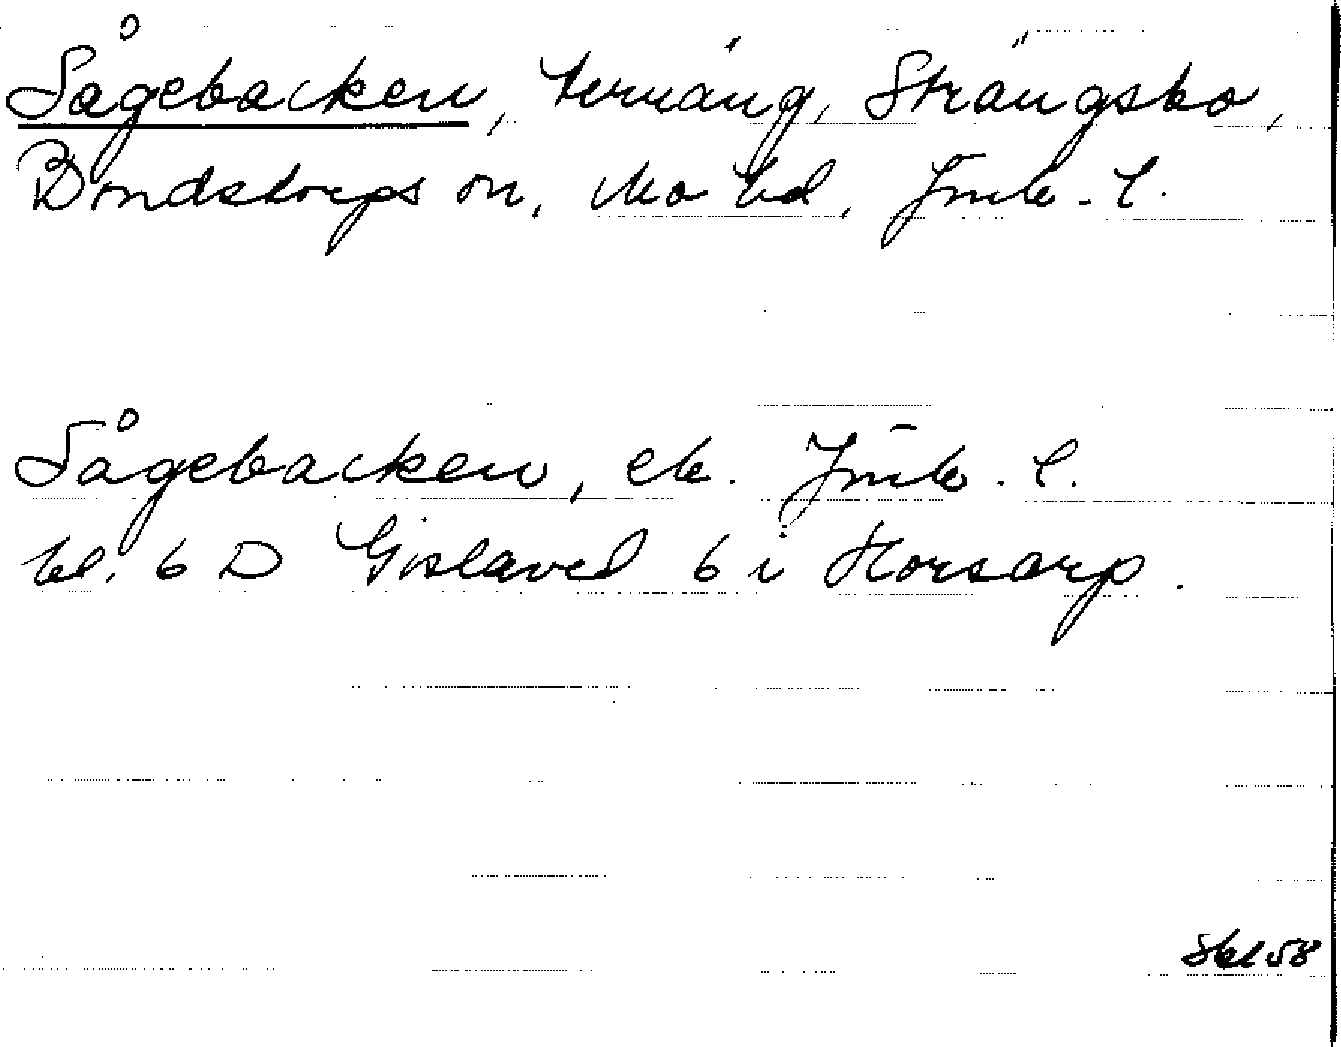 Sågebacken, terräng, Strängsbo,
Bondstorps sn, Mo hd, Jmk. l.
Sågebacken, ek. Jmk. l.
bl. 6 D Gislaved 6 i Horsarp.